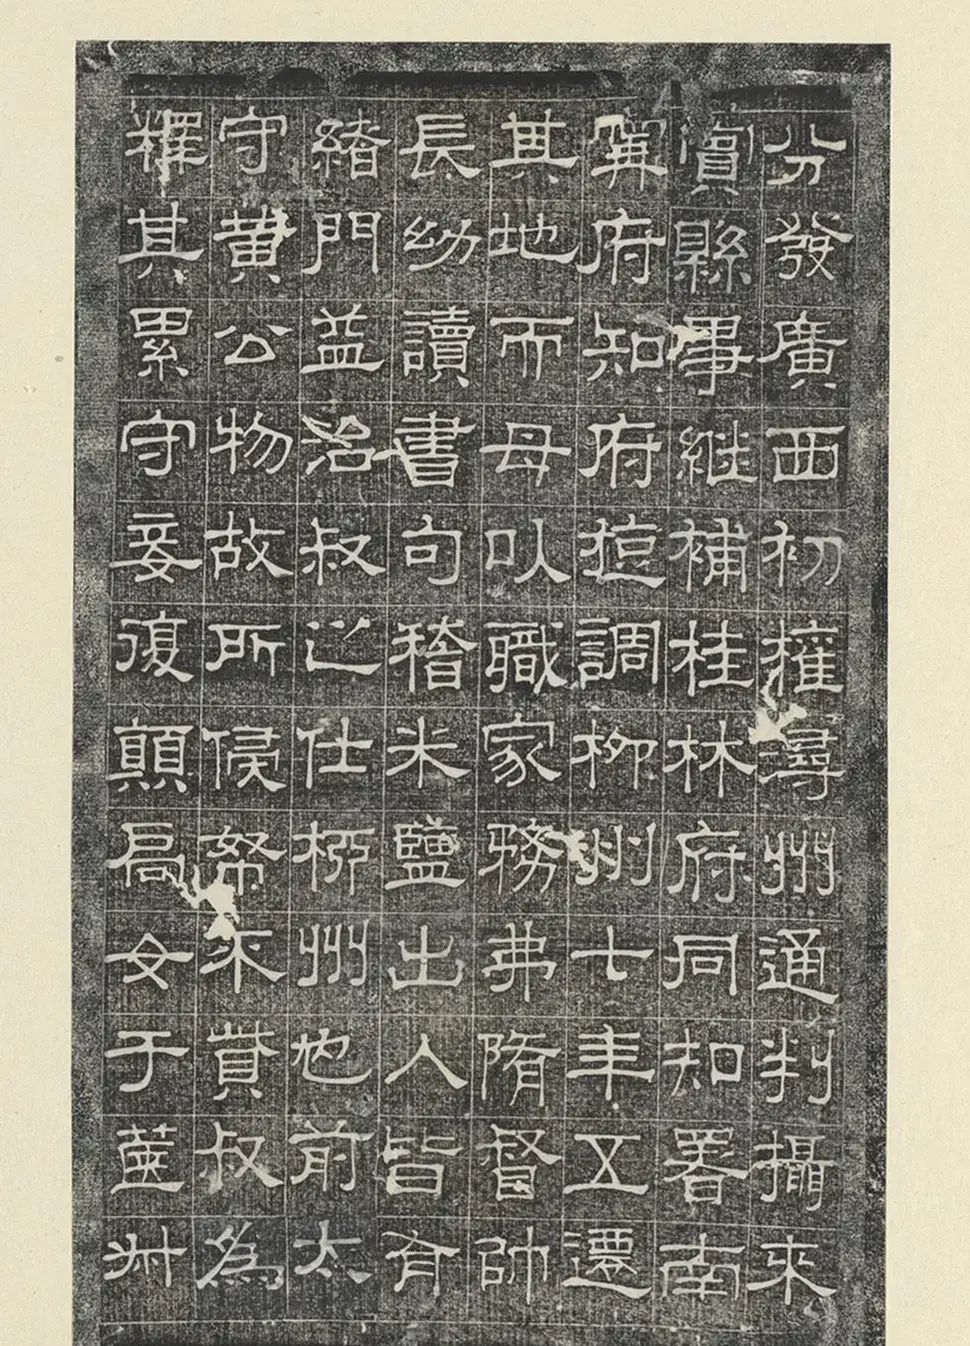 分發廣西初擢潯州通判攝來
賓縣事繼補桂林府同知署南
寧府知府㨗調柳州七年五遷
其地而母以職家務弗隋督帥
長幼讀書句稽米鹽出入皆有
緒門益治叔之仕柳州也前太
守黄公物故所侵帑不貲叔為
釋其累守妾復顛局女于蓝艸